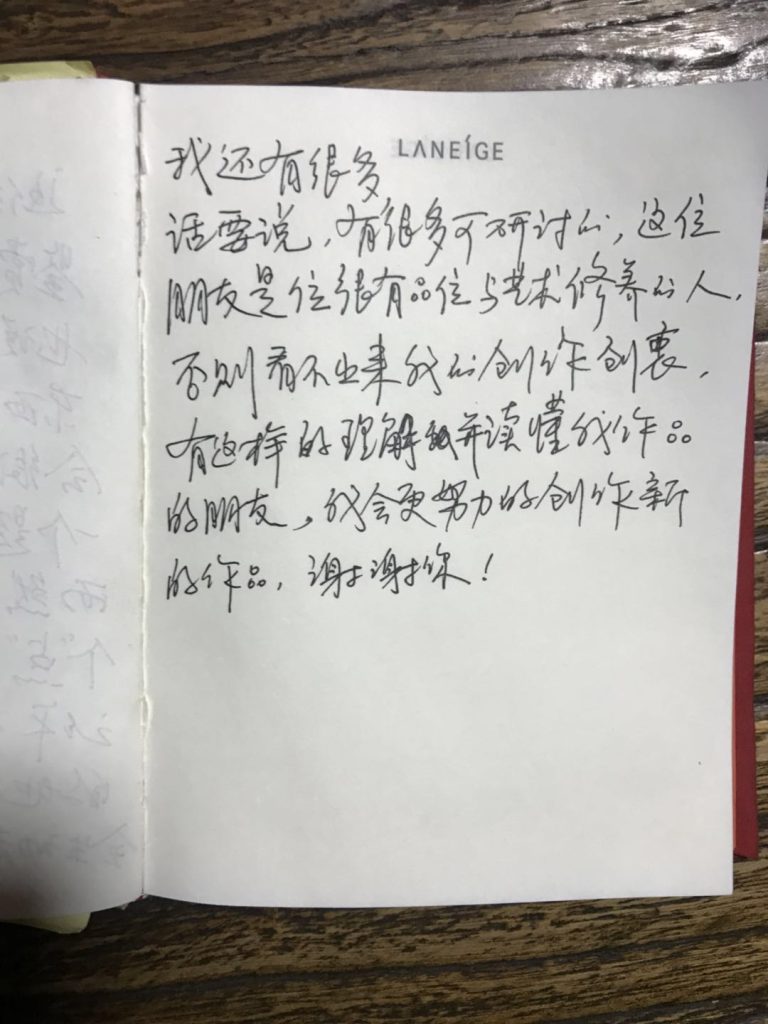 LANEÍGE
我还有很多
话要说，有很多可研讨的，这位
朋友是位很有品位与艺术修养的人，
否则看不出来我的创作创衷，
有这样的理解并读懂我作品
的朋友，我会更努力的创作新
的作品，谢谢你！